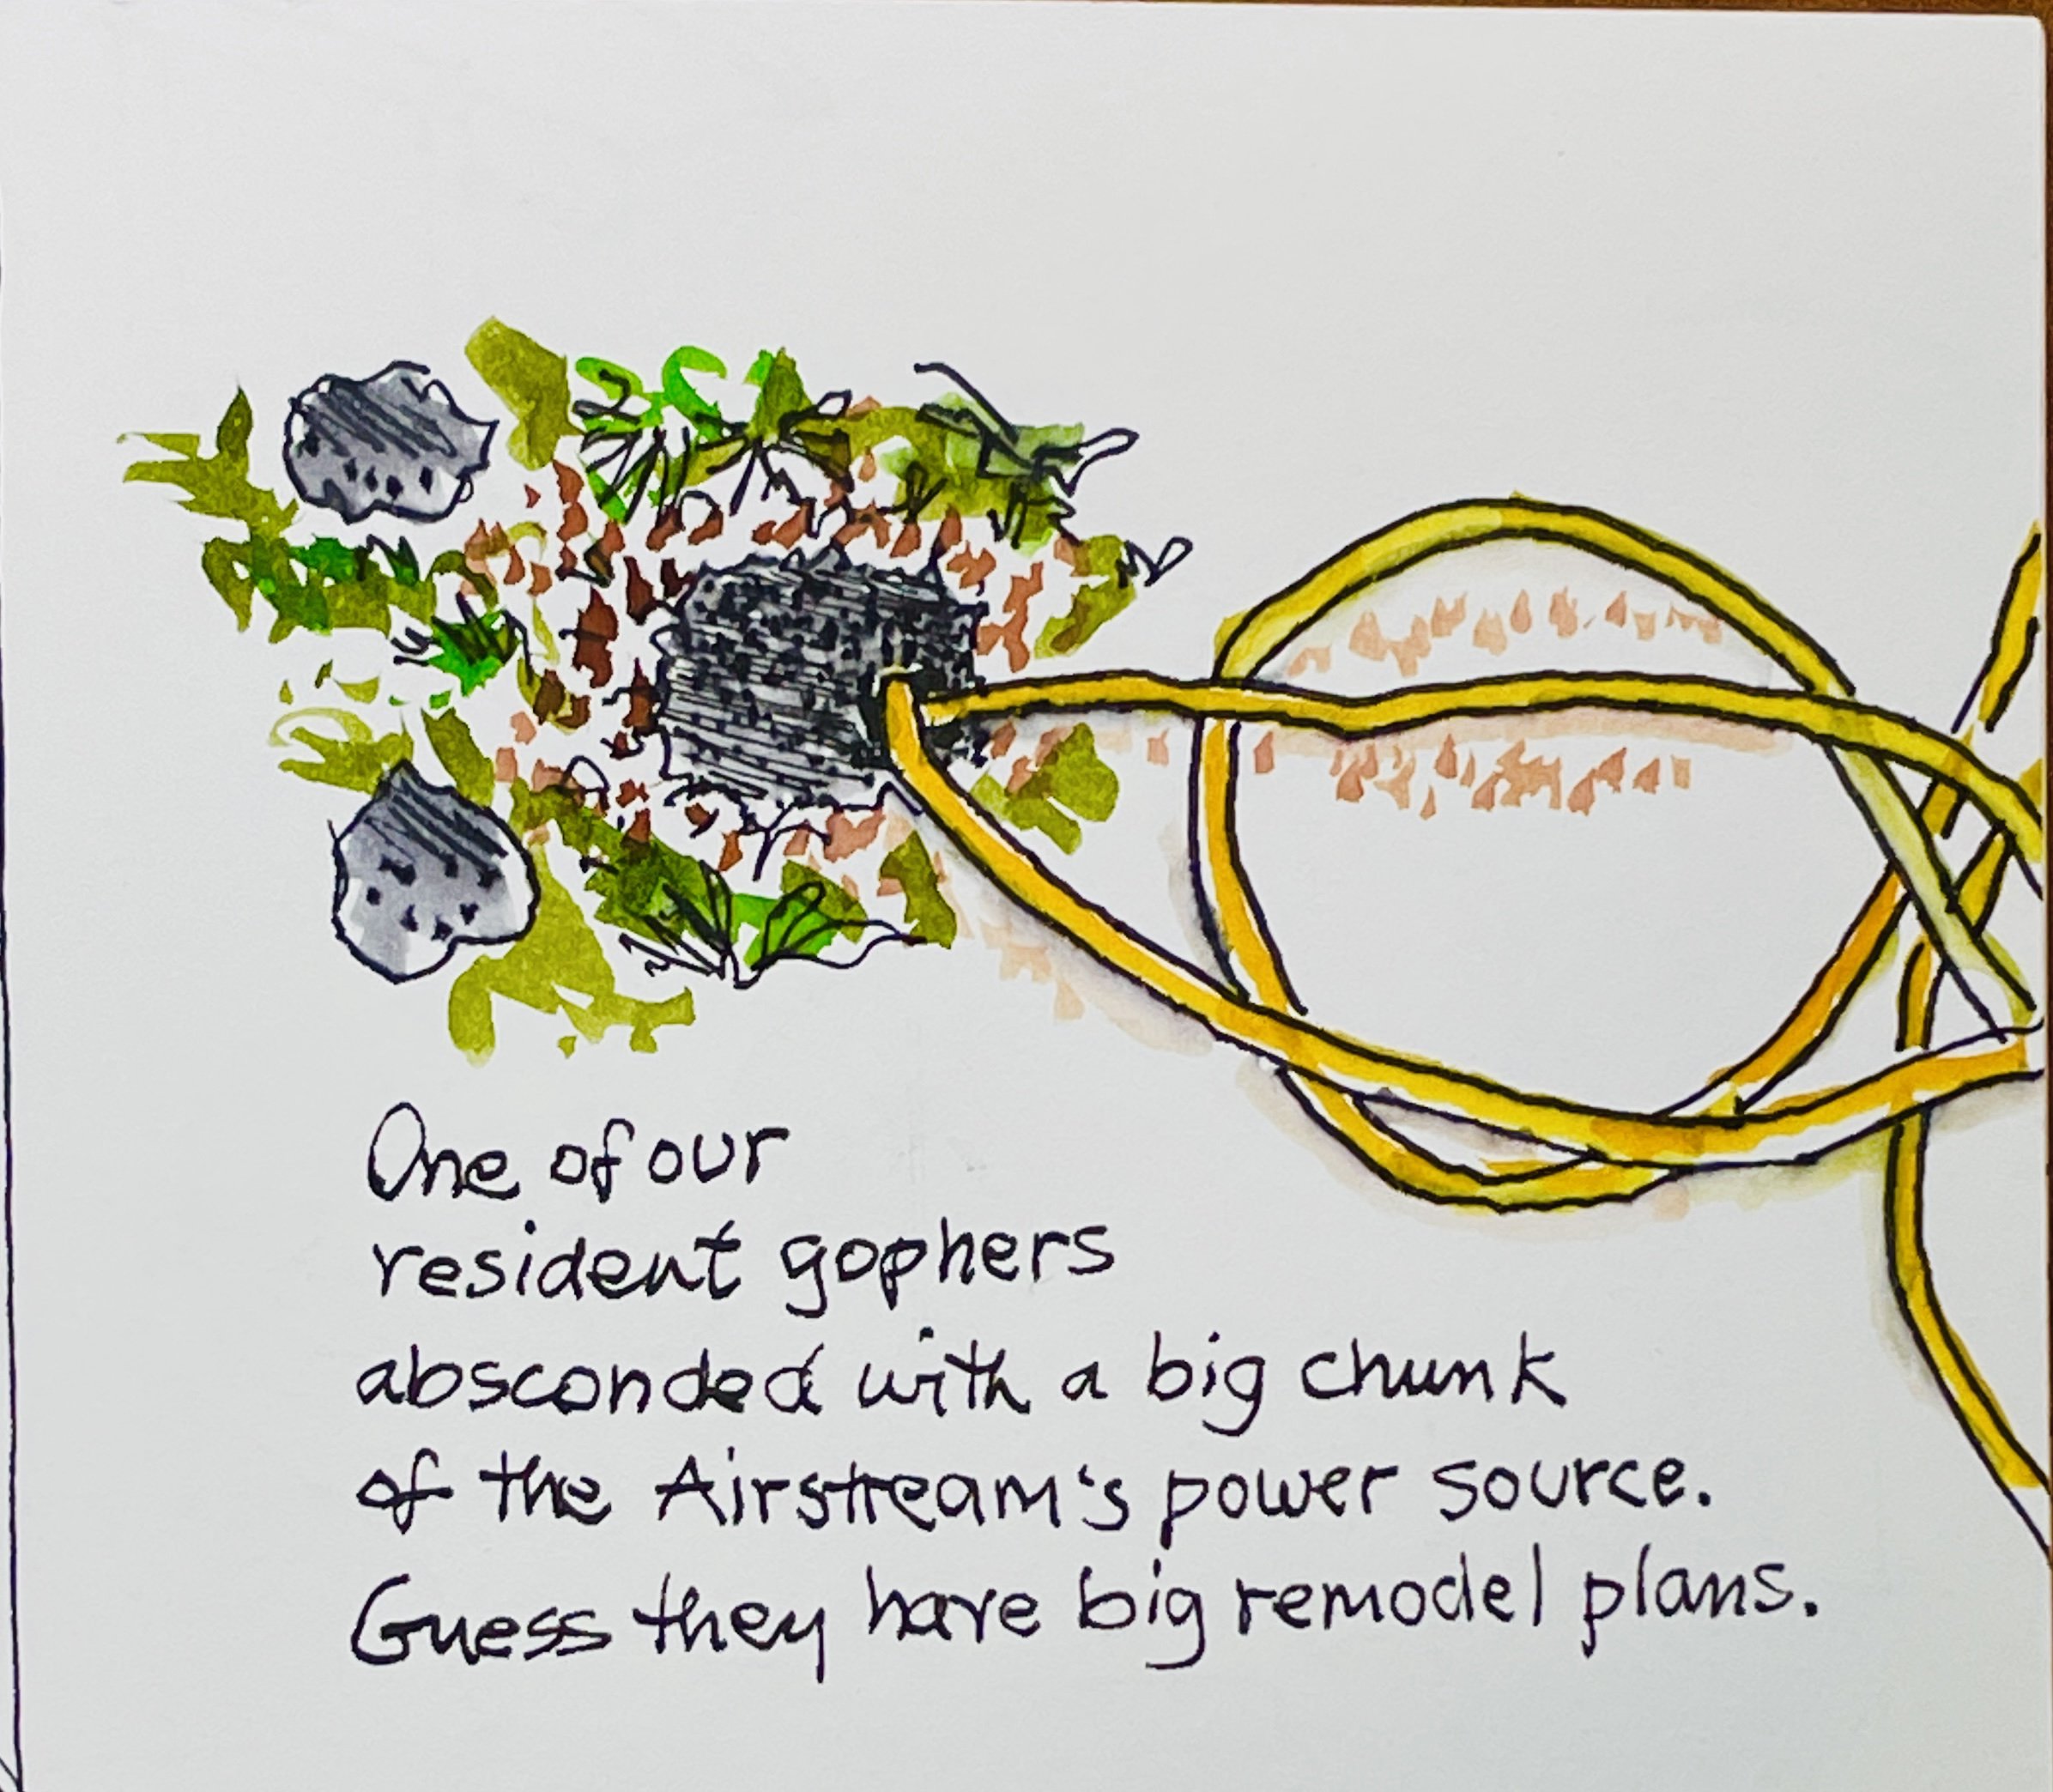 One of our
resident gophers
absconded with a big chunk
of the Airstream's power source.
Guess they have big remodel plans.